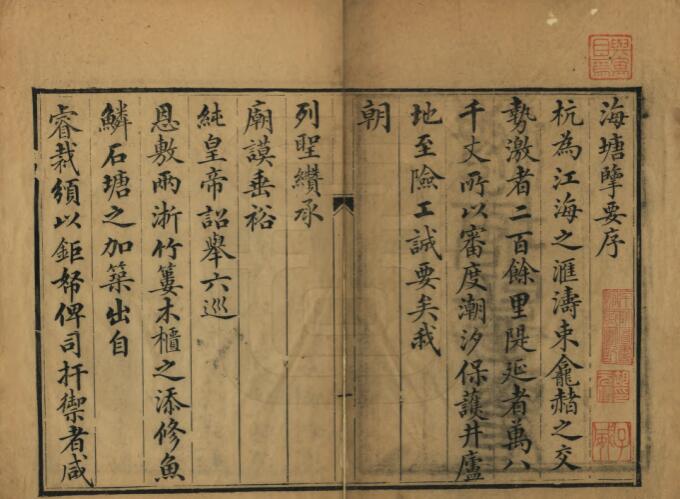 海塘擥要序
杭為江海之滙濤束龕赭之交
勢激者二百餘里隄延者萬八
千丈所以審度潮汐保護井廬
地至險工誠要矣我
朝
列聖纘承
廟謨垂裕
純皇帝詔舉六巡
恩敷兩浙竹簍木櫃之添修魚
鱗石塘之加築出自
睿裁頒以鉅帑俾司扞禦者咸
一